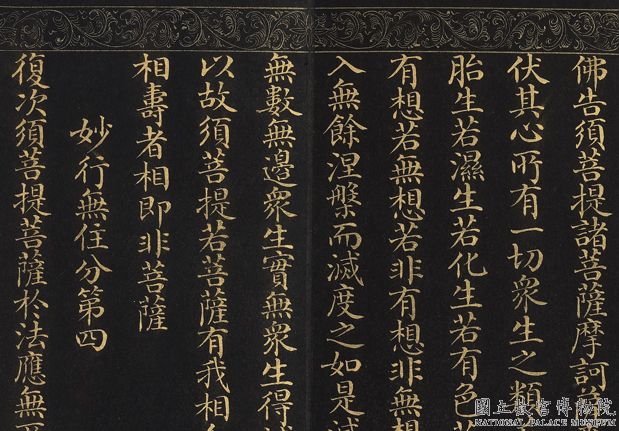 佛告須菩提諸菩薩摩訶
伏其心所有一切衆生之類
胎生若濕生若化生若有色
有想若無想若非有想非無想
入無餘涅槃而滅度之如是滅
無數無邊衆生實無衆生得
以故須菩提若菩薩有我相
相壽者相即非菩薩
妙行無住分第四
復次須菩提菩薩於法應無
國立故宮博物院
NATIONAL PALACE MUSEUM